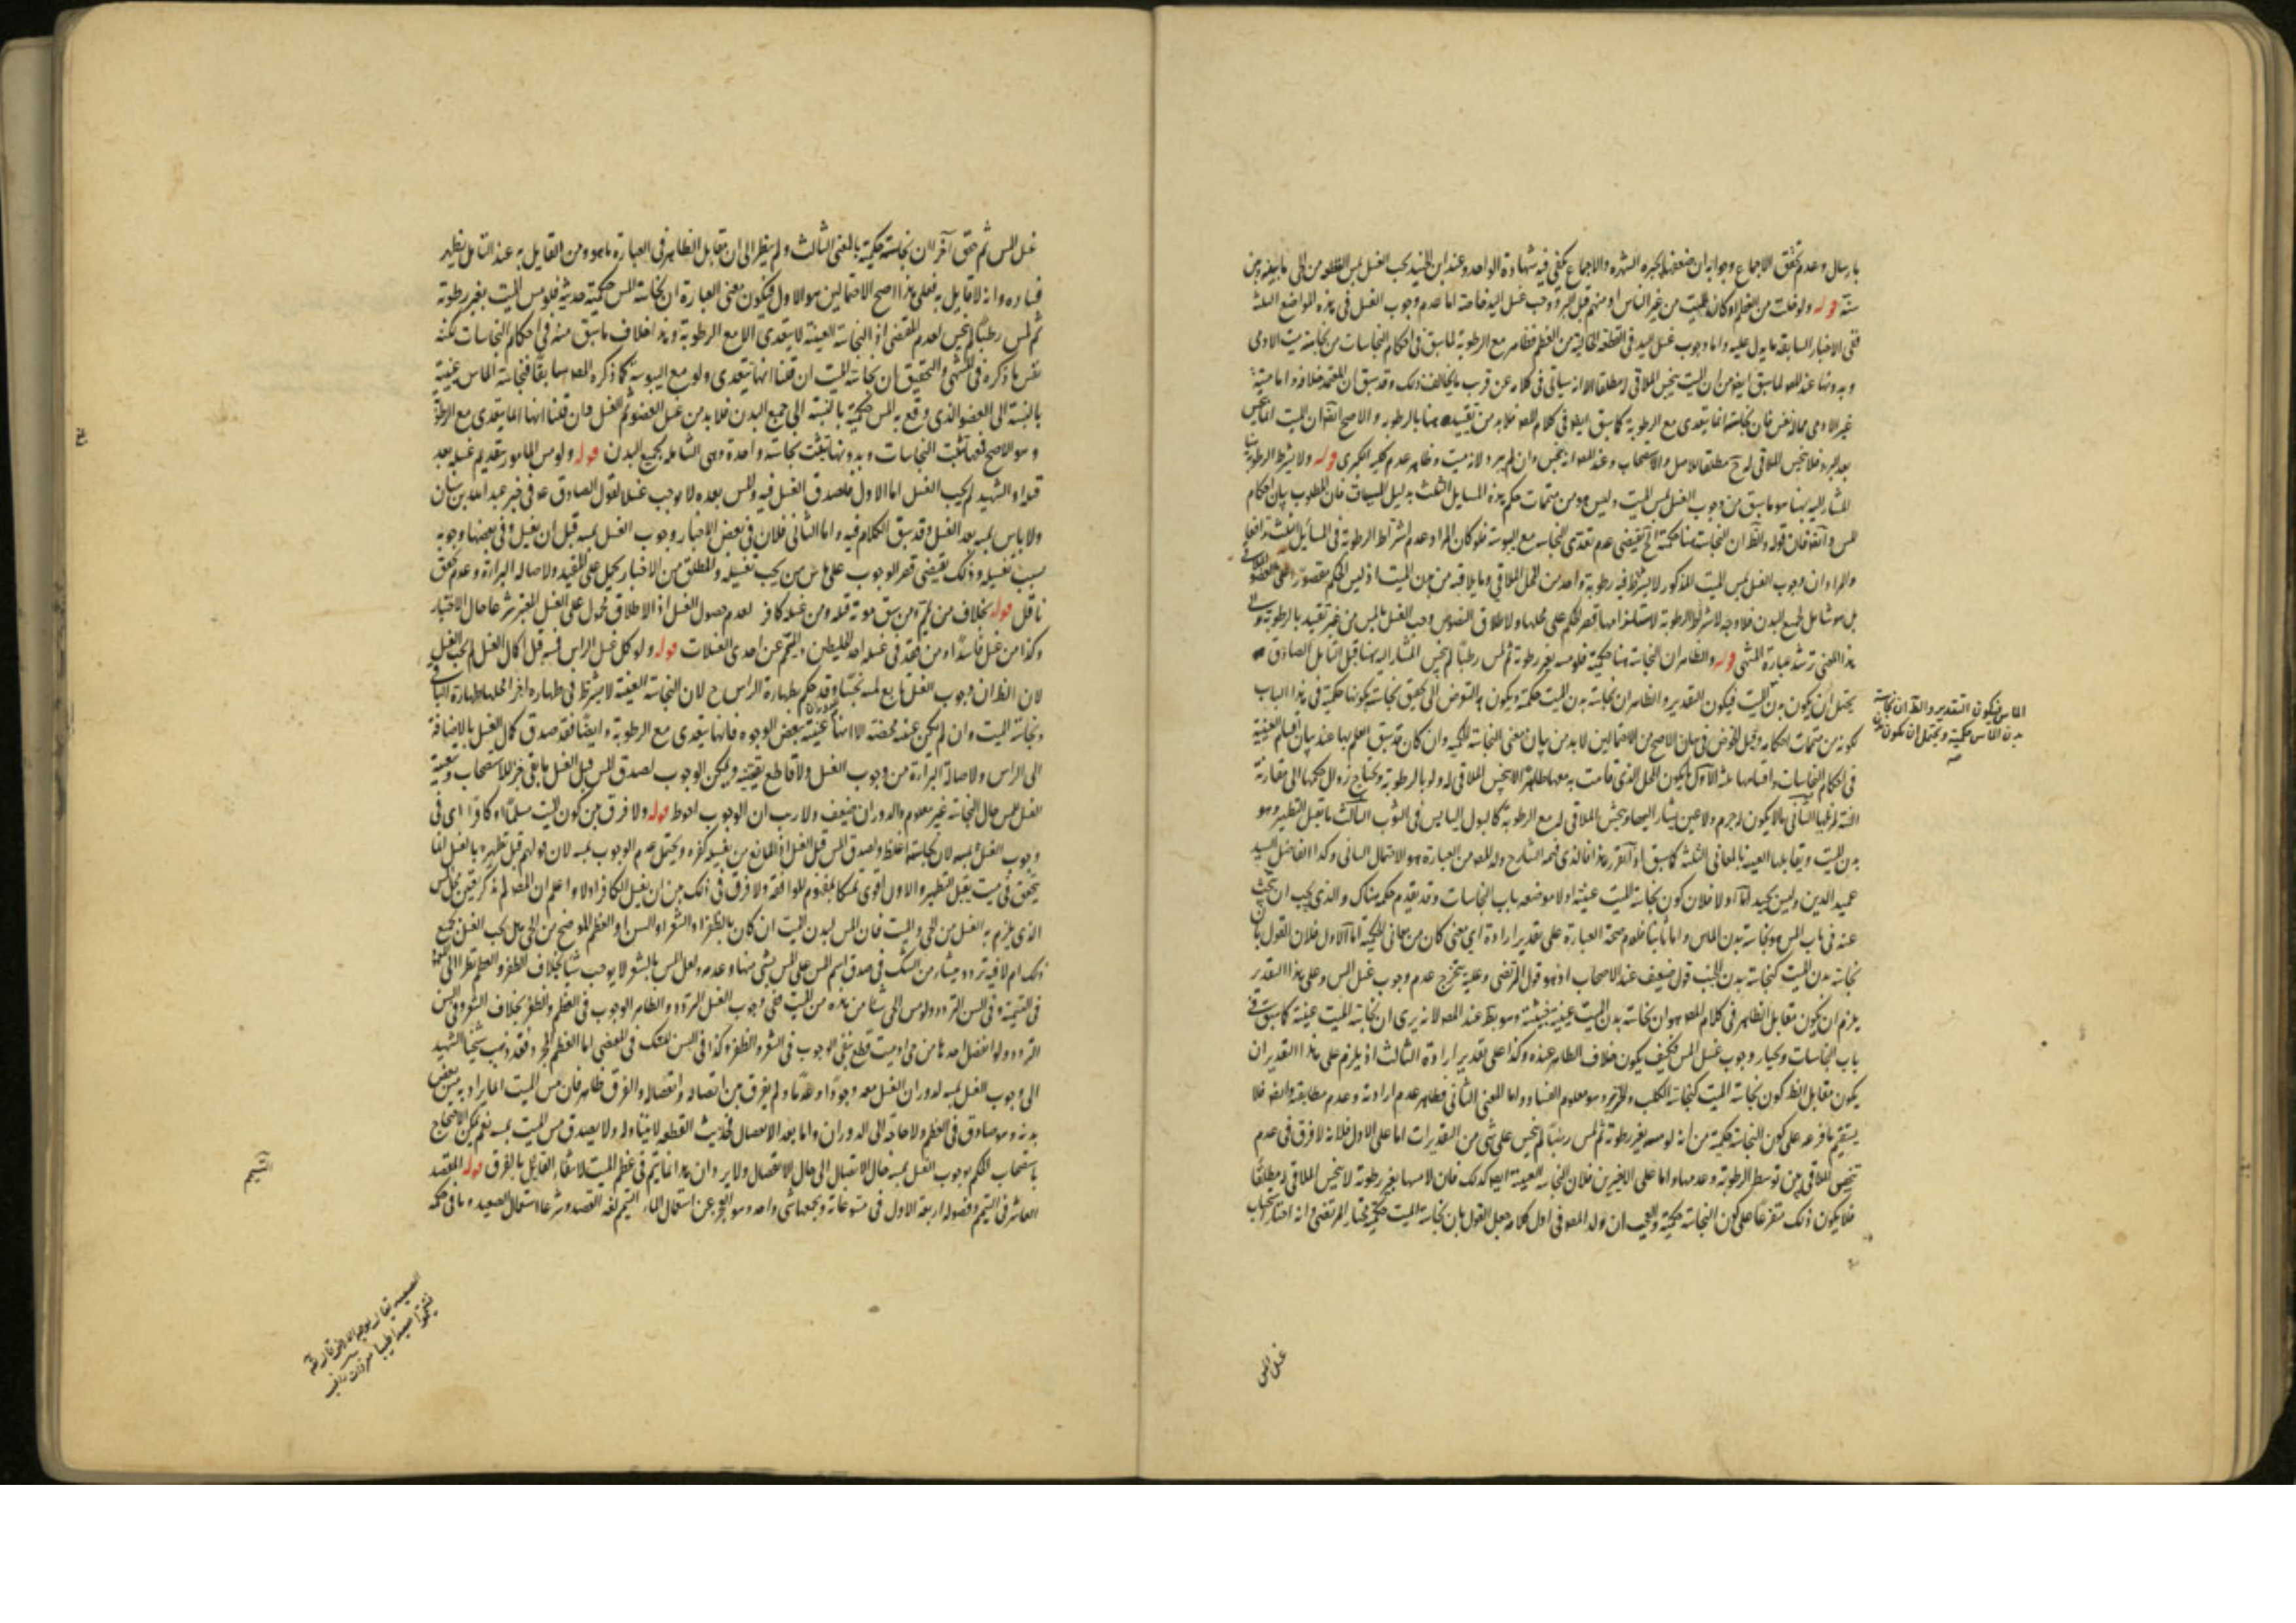 بارسال وعدم تحقق الاجماع وجوابه ان ضعفها يجبره الشهرة والاجماع يكفي فيه شهادة الواحد وعند ابن الجنيد يجب الغسل بمس القطعة من الحي ما بينه وبين
سنة قوله ولو خلت من العظم او كان الميت من غير الناس او منهم قبل البرد وجب غسل اليد خاصة اما عدم وجوب الغسل في هذه المواضع الثلثة
ففي الاخبار السابقة ما يدل عليه واما وجوب غسل اليد في القطعة الخالية من العظم فظاهر مع الرطوبة لما سبق في احكام النجاسات من نجاسة ميت الادمي
وبدونها عند المص لما سبق ايضا من ان الميت ينجس الملاقي له مطلقا الا انه سياتي في كلامه عن قرب ما يخالف ذلك وقد سبق ان المعتمد خلافه واما ميتة
غير الادمي مما له نفس فان نجاسته انما يتعدى مع الرطوبة كما سبق ايضا في كلام المص فلا بد من تقييده هنا بالرطوبة والاصح ايضا ان الميت انما ينجس
بعد البرد فلا ينجس الملاقي له ح مطلقا للاصل والاستصحاب وعند المص انه ينجس وان لم يبرد لانه ميت وظاهر عدم نجسه الكبرى قوله ولا يشترط الرطوبة هنا
المشار اليه بهنا هو ما سبق من وجوب الغسل بمس الميت وليس هو من متممات حكم هذه المسايل الثلث بدليل السياق فان المطلوب بيان احكام
المس وايضا فان قوله والظ ان النجاسة هنا حكمية الخ يقتضي عدم تعدى النجاسة مع اليبوسة فلو كان المراد عدم اشتراط الرطوبة في المسائل الثلثة لتدافعا
والمراد ان وجوب الغسل بمس الميت المذكور لا يشترط فيه رطوبة واحد من المحل الملاقي وما يلاقيه من بدن الميت اذ ليس الحكم مقصورا على العضو الملاقي
بل هو شامل لجميع البدن فلا وجه لاشتراط الرطوبة لاستلزامها قصر الحكم على محلها ولاطلاق النصوص وجب الغسل بالمس من غير تقييد بالرطوبة والى
هذا المعنى ترشد عبارة المنتهى قوله والظاهر ان النجاسة هنا حكمية فلو مسه بغير رطوبة ثم لمس رطبا لم ينجس المشار اليه بهنا قبل التأمل الصادق
يحتمل ان يكون بدن الميت فيكون التقدير والظاهر ان نجاسة بدن الميت حكمية ويكون التعرض الى تحقيق نجاسته بكونها حكمية في هذا الباب
لكونه من متممات احكامه وقبل الخوض في بيان الاصح من الاحتمالين لا بد من بيان معنى النجاسة الحكمية وان كان قد سبق العلم بها عند بيان اقسام العينية
في احكام النجاسات واقسامها ثلثة الاول ما يكون المحل الذي قامت به معها طاهرا لا ينجس الملاقي له ولو بالرطوبة ويحتاج زوال حكمها الى مقارنة
النية لرفعها الثاني ما لا يكون له جرم ولا عين يشار اليها وينجس الملاقي له مع الرطوبة كالبول اليابس في الثوب الثالث ما يقبل التطهير وهو
بدن الميت ويقابلها العينية بالمعاني الثلثة كما سبق اذا تقرر هذا فالذي فهمه الشارح ولد المص من العبارة هو الاحتمال الثاني وكذا الفاضل السيد
عميد الدين وليس بجيد اما اولا فلان كون نجاسة الميت عينية او لا موضعه باب النجاسات وقد تقدم حكمه هناك والذي يجب ان يبحث
عنه في باب المس هو نجاسة بدن الماس واما ثانيا فلعدم صحة العبارة على تقدير ارادة اي معنى كان من معاني الحكمية اما الاول فلان القول بان
نجاسة بدن الميت كنجاسة بدن الجنب قول ضعيف عند الاصحاب اذ هو قول المرتضى وعليه يتخرج عدم وجوب غسل المس وعلى هذا التقدير
يلزم ان يكون مقابل الظاهر في كلام المص هو ان نجاسة بدن الميت عينية خبيثة وهو بط عند المص لانه يرى ان نجاسة الميت عينية كما سبق في
باب النجاسات ويختار وجوب غسل المس فكيف يكون خلاف الظاهر عنده وكذا على تقدير ارادة الثالث اذ يلزم على هذا التقدير ان
يكون مقابل الظ كون نجاسة الميت كنجاسة الكلب والخنزير وهو معلوم الفساد واما المعنى الثاني فظاهر عدم ارادته وعدم مطابقته وايضا فلا
يستقيم ما فرعه على كون النجاسة حكمية من انه لو مسه بغير رطوبة ثم لمس رطبا لم ينجس على شي من التقديرات اما على الاول فلانه لا فرق في عدم
تنجيس الملاقي بين توسط الرطوبة وعدمها واما على الاخيرين فلان النجاسة العينية ايضا كذلك فان لامسها بغير رطوبة لا ينجس الملاقي له مطلقا
فلا يكون ذلك متفرعا على كون النجاسة حكمية والعجب ان ولد المص في اول كلامه جعل القول بان نجاسة الميت حكمية مختار المرتضى وانه اختار استحباب
الماس فيكون التقدير والظ ان نجاسة
بدن الماس حكمية ويحتمل ان يكون بدن
غسل المس
غسل المس ثم حقق آخرا ان نجاسته حكمية بالمعنى الثالث ولم ينظر الى ان مقابل الظاهر في العبارة ما هو ومن القايل به عند التامل يظهر
فساده وانه لا قايل به فعلى هذا اصح الاحتمالين هو الاول فيكون معنى العبارة ان نجاسة المس حكمية حدثية فلو مس الميت بغير رطوبة
ثم لمس رطبا لم ينجس لعدم المقتضى اذ النجاسة العينية لا يتعدى الا مع الرطوبة وهذا خلاف ما سبق منه في احكام النجاسات لكنه
نفس ما ذكره في المنتهى والتحقيق ان نجاسة الميت ان قلنا انها يتعدى ولو مع اليبوسة كما ذكره المص سابقا فنجاسة الماس عينية
بالنسبة الى العضو الذي وقع به المس حكمية بالنسبة الى جميع البدن فلا بد من غسل العضو ثم الغسل وان قلنا انها انما يتعدى مع الرطوبة
وهو الاصح فمعها تثبت النجاسات وبدونها تثبت نجاسة واحدة وهي الشاملة لجميع البدن قوله ولو مس المامور بتقديم غسله بعد
قتله او الشهيد لم يجب الغسل اما الاول فلصدق الغسل فيه والمس بعده لا يوجب غسلا لقول الصادق ع في خبر عبد الله بن سنان
ولا باس بمسه بعد الغسل وقد سبق الكلام فيه واما الثاني فلان في بعض الاخبار وجوب الغسل بمسه قبل ان يغسل وفي بعضها وجوبه
بسبب تغسيله وذلك يقتضي قصر الوجوب على ماس من يجب تغسيله والمطلق من الاخبار يحمل على المقيد ولاصالة البراءة وعدم تحقق
ناقل قوله بخلاف من يمم ومن سبق موته قتله ومن غسله كافر لعدم حصول الغسل اذ الاطلاق محمول على الغسل المعتبر شرعا حال الاختيار
وكذا من غسل فاسدا ومن فقد في غسله احد الخليطين والمتيمم عن احدى الغسلات قوله ولو كمل غسل الراس فمسه قبل اكمال الغسل لم يجب الغسل
لان الظ ان وجوب الغسل تابع لمسه نجسا وقد حكم بطهارة الراس ح لان النجاسة العينية لا يشترط في طهارة اجزاء محلها طهارة الباقي
ونجاسة الميت وان لم يكن عينية محضة الا انها عينية ببعض الوجوه فانها يتعدى مع الرطوبة وايضا فقد صدق كمال الغسل بالاضافة
الى الراس ولاصالة البراءة من وجوب الغسل ولا قاطع بعينه ويمكن الوجوب لصدق المس قبل الغسل ما بقي جزء للاستصحاب وتبعية
الغسل لمس حال النجاسة غير معلوم والدوران ضعيف ولا ريب ان الوجوب احوط قوله ولا فرق بين كون الميت مسلما او كافرا اي في
وجوب الغسل بمسه لان نجاسته اغلظ ولصدق المس قبل الغسل اذ المانع من غسله كفره ويحتمل عدم الوجوب بمسه لان قولهم قبل تطهيره بالغسل انما
يتحقق في ميت يقبل التطهير والاول اقوى تمسكا بمفهوم الموافقة ولا فرق في ذلك بين ان يغسل الكافر او لا واعلم ان المص لم يذكر تعيين محل المس
الذي يلزم به الغسل من الحي والميت فان المس لبدن الميت ان كان بالظفر او الشعر او السن او العظم الموضح من الحي هل يجب الغسل بجميع
ذلك ام لا فيه تردد ينشا من الشك في صدق اسم المس على المس بشي منها وعدمه ولعل المس بالشعر لا يوجب شيا بخلاف الظفر والعظم نظرا الى
في التسمية وفي السن التردد ولو مس الحي شيا من هذه من الميت ففي وجوب الغسل التردد والظاهر الوجوب في العظم والظفر بخلاف الشعر وفي السن
التردد ولو انفصل احدها من حي او ميت قطع بنفي الوجوب في الشعر والظفر وكذا في السن للشك في المقتضى اما العظم المجرد فقد ذهب شيخنا الشهيد
الى وجوب الغسل بمسه لدوران الغسل معه وجودا وعدما ولم يفرق بين اتصاله وانفصاله والفرق ظاهر فان مس الميت انما يراد به مس بعض
بدنه وهو صادق في العظم ولا حاجة الى الدوران واما بعد الانفصال فحديث القطعة لا يتناوله ولا يصدق مس الميت بمسه نعم يمكن الاحتجاج
باستصحاب الحكم بوجوب الغسل بمسه حال الاتصال الى حال الانفصال ولا يرد ان هذا انما يتم في عظم الميت لانتفاء القائل بالفرق قوله المقصد
العاشر في التيمم وفصوله اربعة الاول في مسوغاته ويجمعها شي واحد وهو العجز عن استعمال الماء التيمم لغة القصد وشرعا استعمال الصعيد وما في حكمه
التيمم